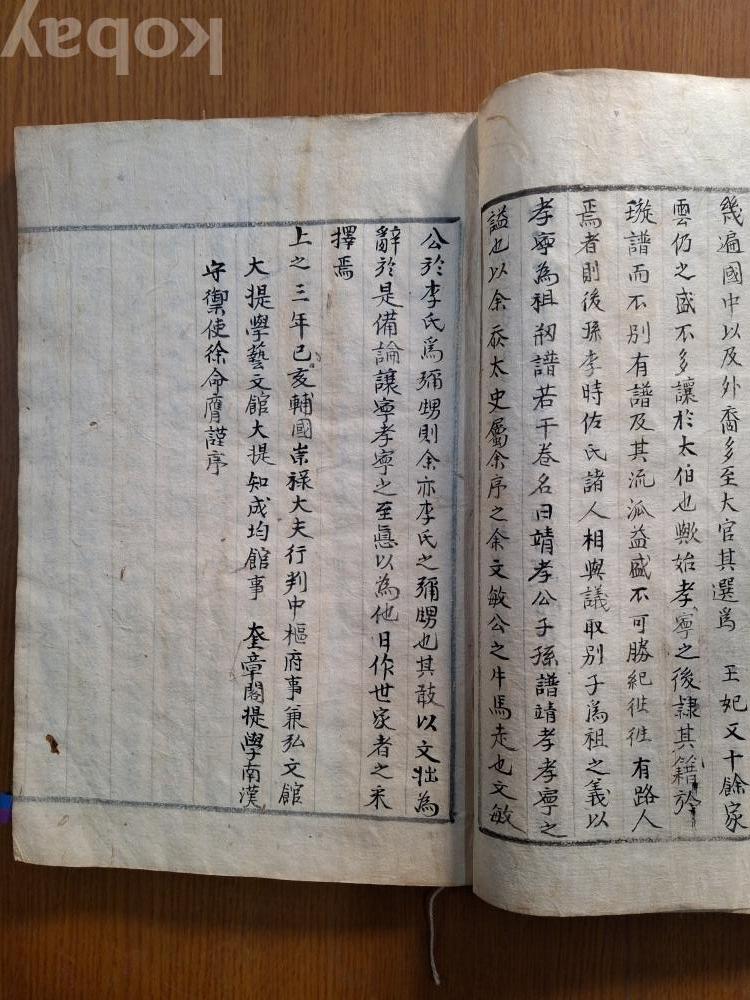 Kobay
幾遍國中以及外裔多至大官其選爲 王妃又十餘家
雲仍之盛不多讓於太伯也歟始孝寧之後隷其籍於
璇譜而不別有譜及其流派益盛不可勝紀徃徃有路人
焉者則後孫李時佐氏諸人相與議取別子爲祖之義以
孝寧為祖刱譜若干卷名曰靖孝公子孫譜靖孝孝寧之
謚也以余忝太史屬余序之余文敏公之牛馬走也文敏
公於李氏爲彌甥則余亦李氏之彌甥也其敢以文拙為
辭於是備論讓寧孝寧之至悳以為他日作世家者之采
擇焉
上之三年己亥輔國崇祿大夫行判中樞府事兼弘文館
大提學藝文館大提知成均館事 奎章閣提學南漢
守禦使徐命膺謹序